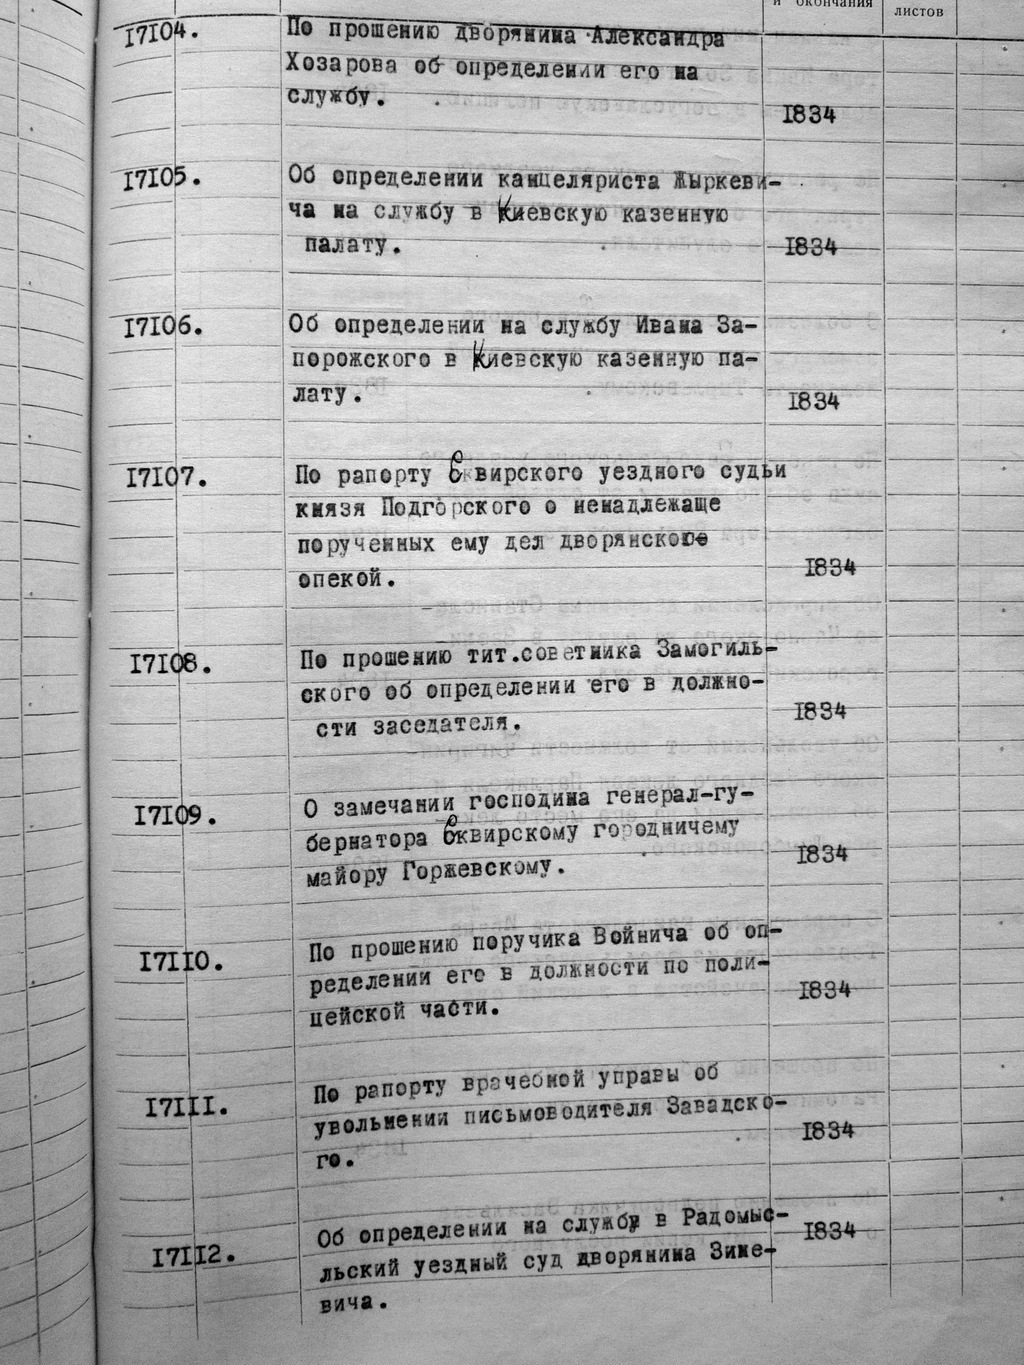 и окончания
листов
17104.
По прошению дворянина Александра
Хозарова об определении его на
службу.
1834
17105.
Об определении канцеляриста Жыркеви-
ча на службу в Киевскую казенную
палату.
1834
17106.
Об определении на службу Ивана За-
порожского в Киевскую казенную па-
лату.
1834
17107.
По рапорту Сквирского уездного судьи
князя Подгорского о ненадлежаще
порученных ему дел дворянскою
опекой.
1834
17108.
По прошению тит.советника Замогиль-
ского об определении его в должно-
сти заседателя.
1834
17109.
О замечании господина генерал-гу-
бернатора Сквирскому городничему
майору Горжевскому.
1834
17110.
По прошению поручика Войнича об оп-
ределении его в должности по поли-
цейской части.
1834
17111.
По рапорту врачебной управы об
увольнении письмоводителя Завадско-
го.
1834
17112.
Об определении на службу в Радомыс-
льский уездный суд дворянина Зине-
вича.
1834